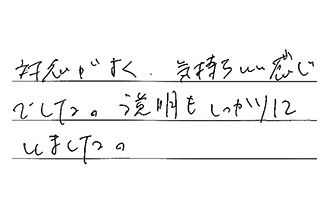 対応がよく、気持ちいい感じ
でした。説明もしっかりに
しました。